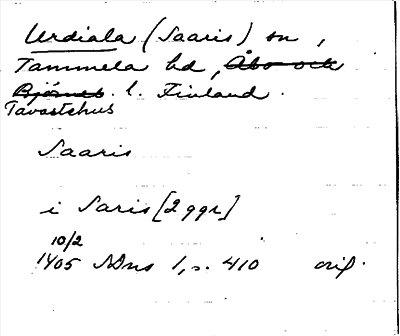 Urdiala (Saaris) sn,
Tammela hd, Åbo och
Björneb. l. Finland.
Tavastehus
Saaris
i Saris [2 ggr]
10/2
1405 SDns 1, s. 410 orig.